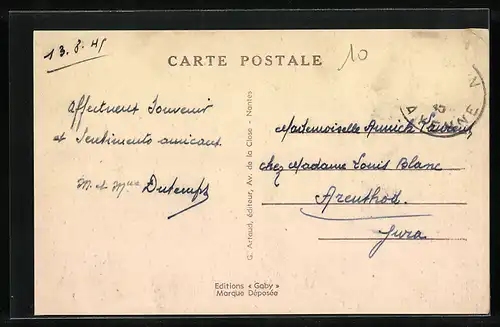 13.8.45
CARTE POSTALE
10
Affectueux Souvenir
et Sentiments amicaux.
M. et Mme Dutemps
G. Artaud, éditeur, Av. de la Close - Nantes
Mademoiselle Annick Laurent,
chez Madame Louis Blanc
Arenthod.
Jura
Editions « Gaby »
Marque Déposée